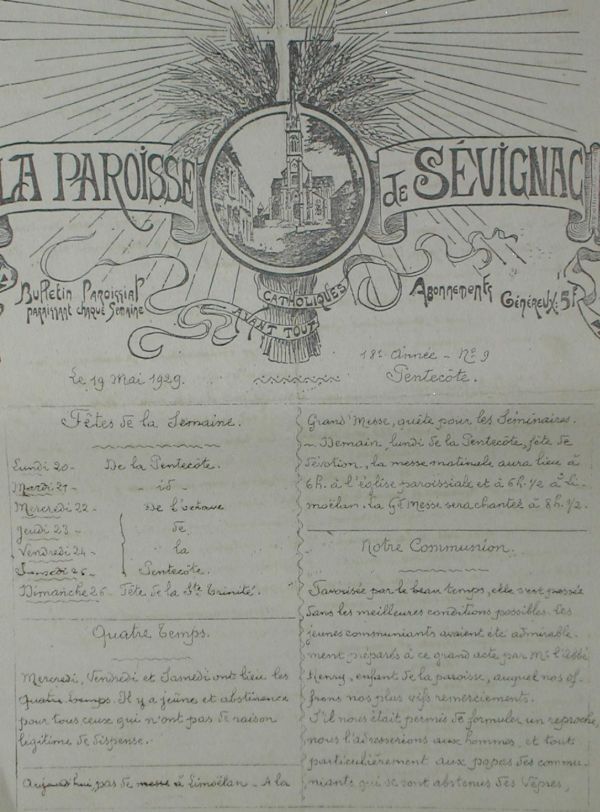 LA PAROISSE de SÉVIGNAC
Bulletin Paroissial
paraissant chaque Semaine
CATHOLIQUES
AVANT TOUT
Abonnements
Généreux: 5F
18e Année - No 9
Le 19 Mai 1929.
Pentecôte.
Fêtes de la Semaine.
Lundi 20 - De la Pentecôte.
Mardi 21 - id -
Mercredi 22 - De l'octave
Jeudi 23 - de
Vendredi 24 - la
Samedi 25 - Pentecôte.
Dimanche 26 - Fête de la Ste Trinité.
Quatre Temps.
Mercredi, Vendredi et Samedi ont lieu les
Quatre-temps. Il y a jeûne et abstinence
pour tous ceux qui n'ont pas de raison
légitime de dispense.
Aujourd'hui pas de messe à Limoëlan - A la
Grand'Messe, quête pour les Séminaires.
- Demain, lundi de la Pentecôte, fête de
dévotion, la messe matinale aura lieu à
6h. à l'église paroissiale et à 6h. 1/2 à Li-
moëlan. La Gd Messe sera chantée à 8h. 1/2.
Notre Communion.
Favorisée par le beau temps, elle s'est passée
dans les meilleures conditions possibles. Les
jeunes communiants avaient été admirable-
ment préparés à ce grand acte par Mr l'Abbé
Henry, enfant de la paroisse, auquel nous of-
frons nos plus vifs remerciements.
S'il nous était permis de formuler un reproche,
nous l'adresserions aux hommes, et tout
particulièrement aux papas des commu-
niants qui se sont abstenus des Vêpres,